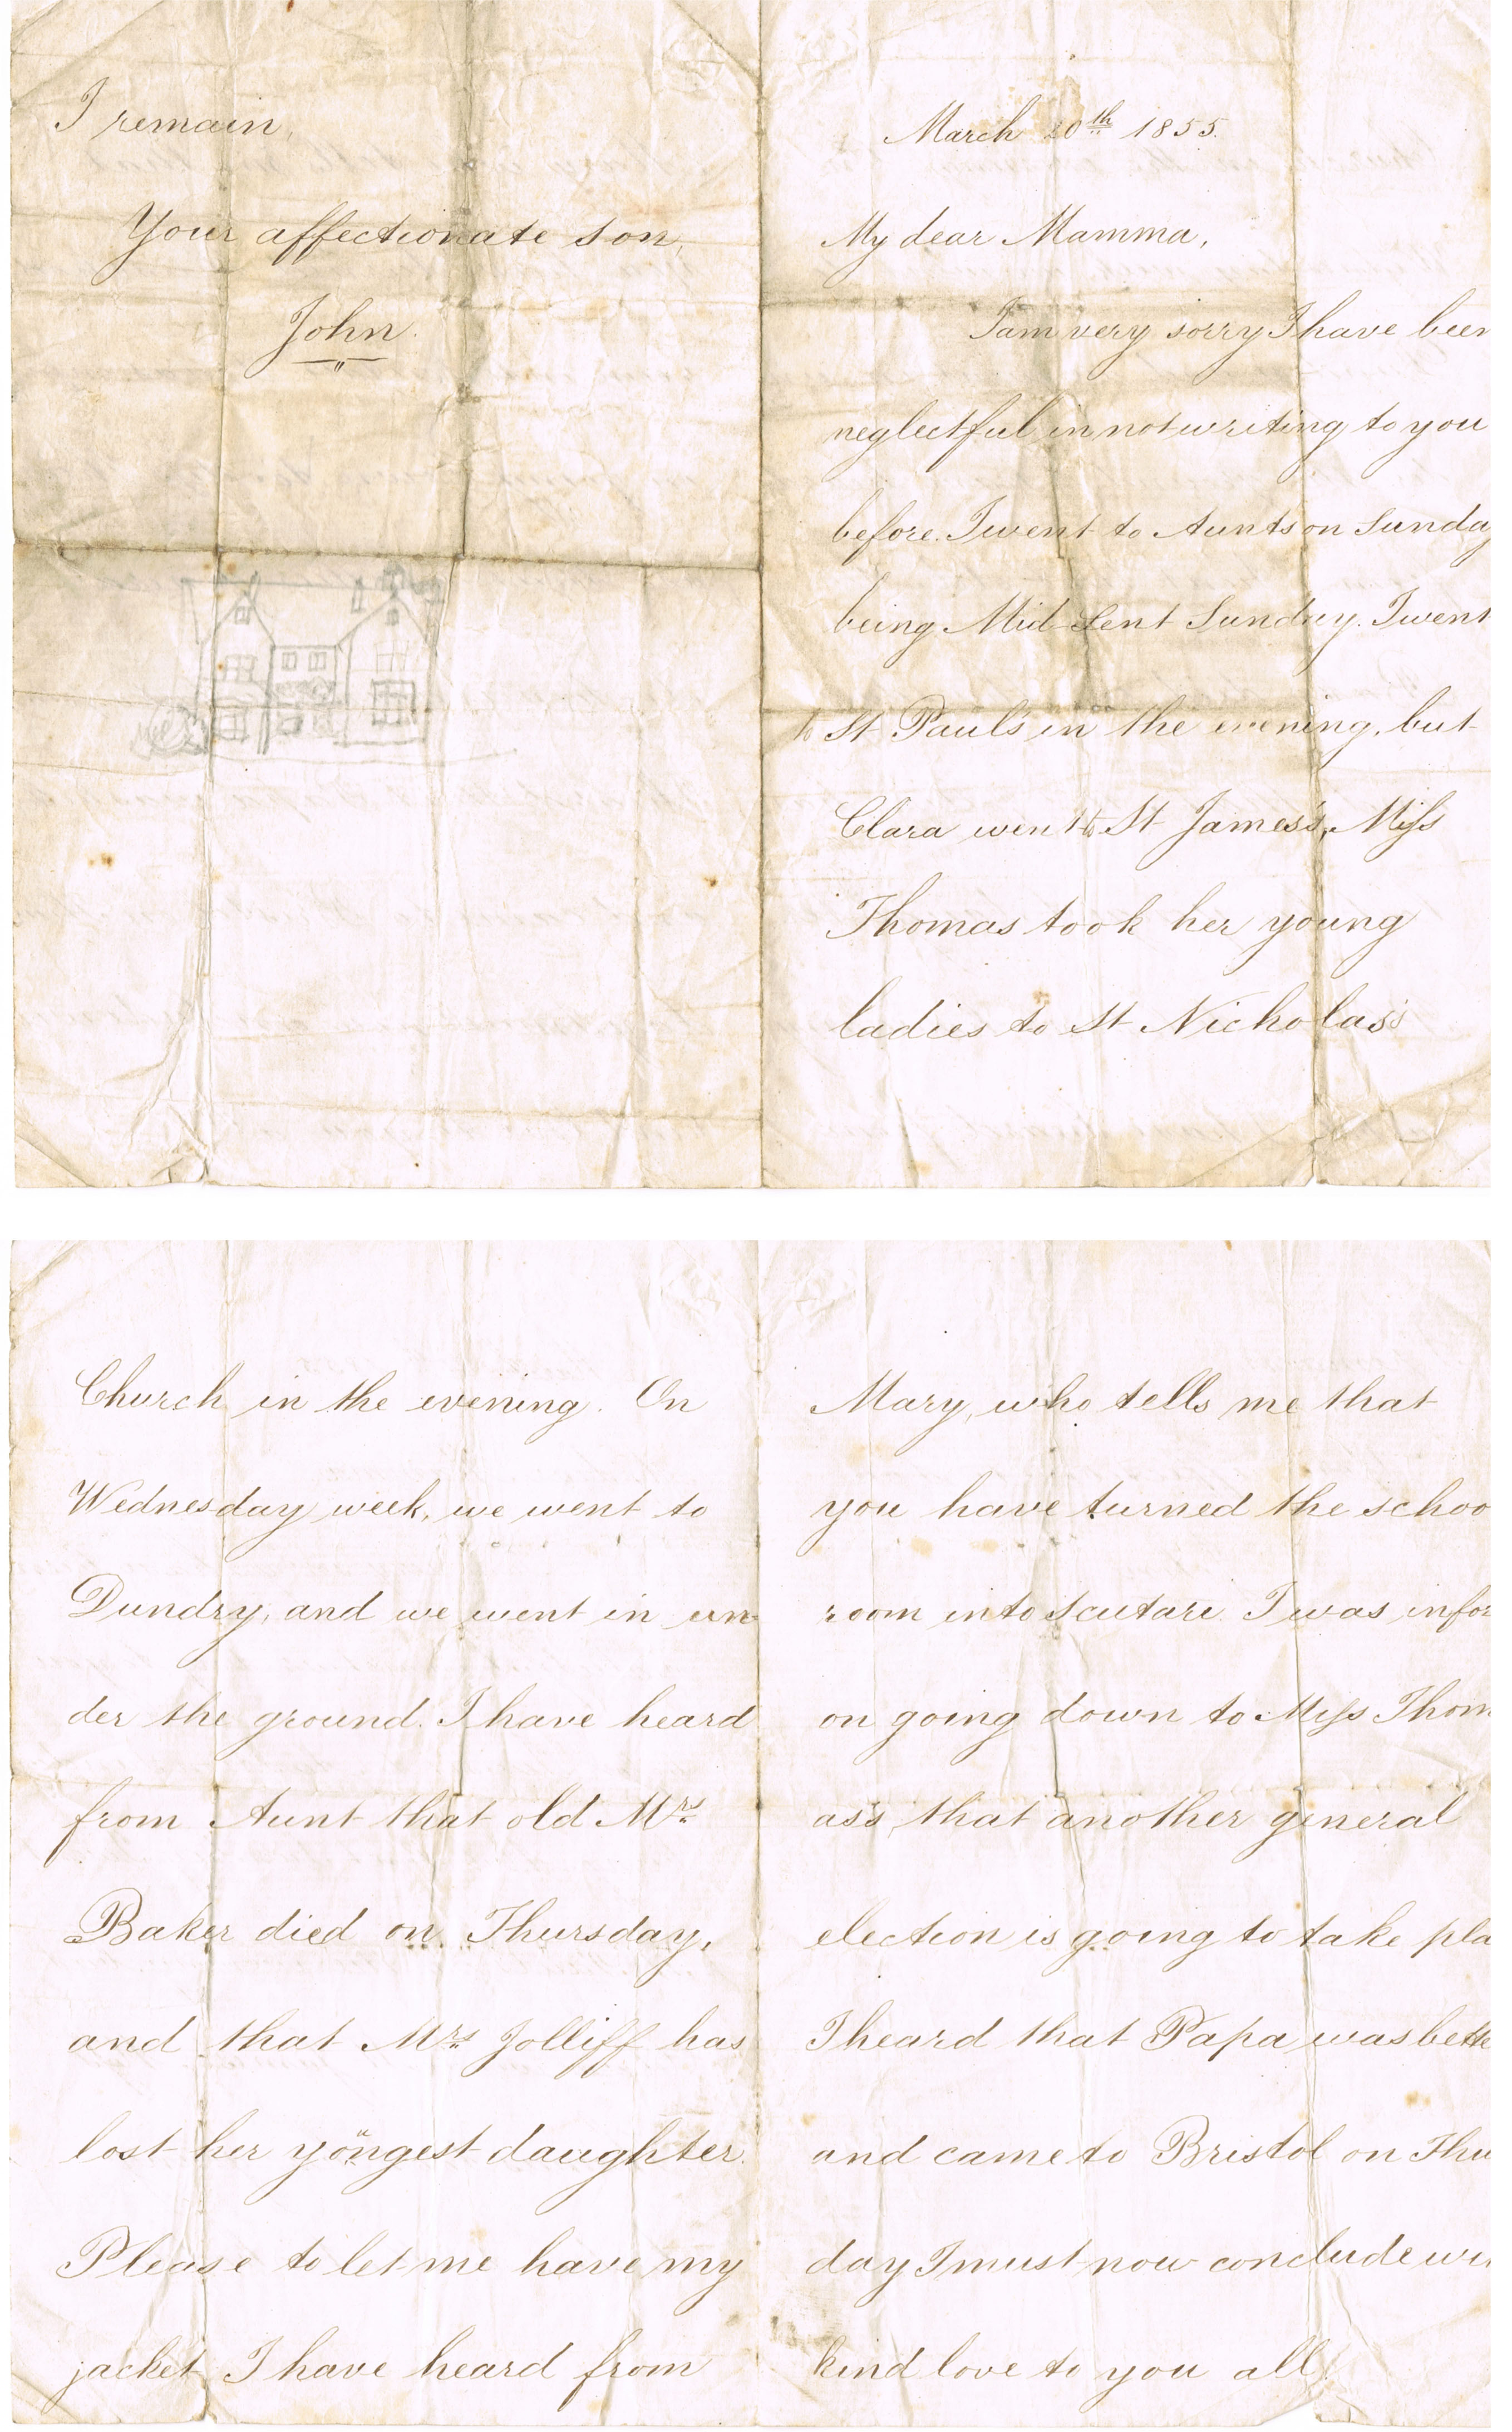 March 20th 1855.
My dear Mamma,
I am very sorry I have been
neglectful in not writing to you
before. I went to Aunts on Sunday
being Mid-Lent Sunday. I went
to St Paul's in the evening, but
Clara went to St James's, Miss
Thomas took her young
ladies to St Nicholas's
Church in the evening. On
Wednesday week, we went to
Dundry, and we went in un-
der the ground. I have heard
from Aunt that old Mrs
Baker died on Thursday,
and that Mrs Jolliff has
lost her yöngest daughter.
Please to let me have my
jacket I have heard from
Mary, who tells me that
you have turned the schoo
room into Scutari. I was infor
on going down to Miss Thom
as's that another general
election is going to take pla
I heard that Papa was bette
and came to Bristol on Thu
day I must now conclude wi
kind love to you all
I remain,
Your affectionate son,
John.